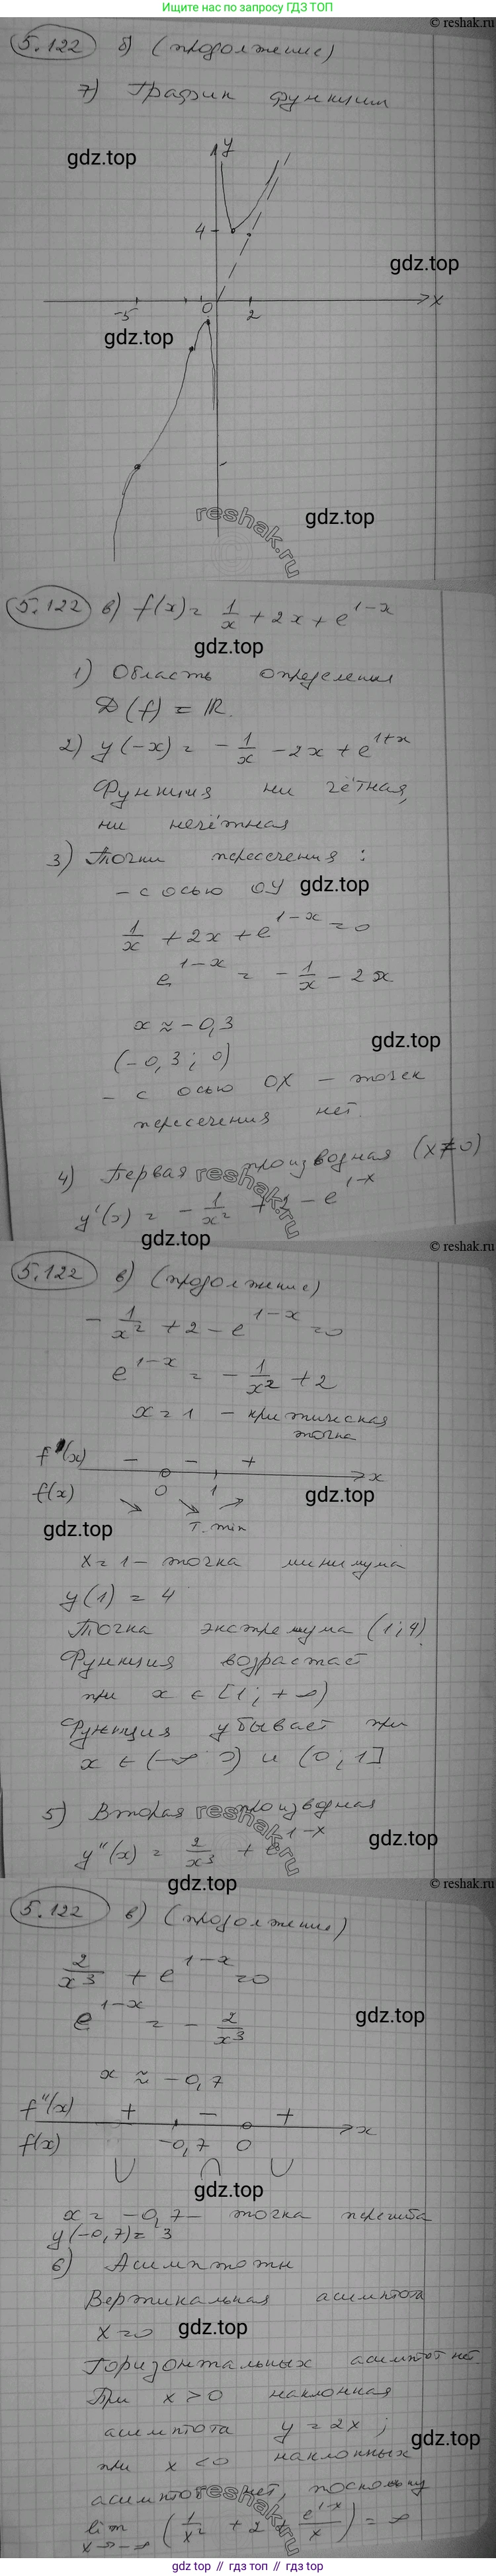 Ищите нас по запросу ГДЗ ТОП
© reshak.ru
5.122 б) (продолжение)
7) График функции
gdz.top
y
4
gdz.top
-5 0 2 x
gdz.top
reshak.ru
gdz.top
5.122 в) f(x) = 1/x + 2x + e^(1-x)
gdz.top
1) Область определения
D(f) = ℝ.
2) y(-x) = -1/x - 2x + e^(1+x)
Функция ни чётная,
ни нечётная
3) Точки пересечения:
- с осью OY gdz.top
1/x + 2x + e^(1-x) = 0
e^(1-x) = -1/x - 2x
x ≈ -0,3
gdz.top
(-0,3; 0)
- с осью OX - точек
пересечения нет.
4) Первая производная (x≠0)
reshak.ru
y'(x) = -1/x² + 2 - e^(1-x)
gdz.top
© reshak.ru
5.122 в) (продолжение)
-1/x² + 2 - e^(1-x) = 0
e^(1-x) = -1/x² + 2
x = 1 - критическая
точка
f'(x) - - + x
f(x) 0 1
gdz.top
gdz.top
т. min
x = 1 - точка минимума
y(1) = 4
Точка экстремума (1; 4).
Функция возрастает
при x ∈ [1; +∞)
Функция убывает при
x ∈ (-∞ 0) и (0; 1]
5) Вторая производная
reshak.ru
y''(x) = 2/x³ + e^(1-x)
gdz.top
gdz.top
© reshak.ru
5.122 в) (продолжение)
2/x³ + e^(1-x) = 0
e^(1-x) = -2/x³
gdz.top
x ≈ -0,7
f''(x) + - + x
f(x) -0,7 0
gdz.top
x = -0,7 - точка перегиба
y(-0,7) = 3
6) Асимптоты
Вертикальная асимптота
x = 0 gdz.top
Горизонтальных асимптот нет.
При x > 0 наклонная
асимптота y = 2x;
gdz.top
при x < 0 наклонных
асимптот нет, поскольку
reshak.ru
lim x→-∞ (1/x² + 2 + e^(1-x)/x) = ∞
gdz.top // гдз.топ // gdz.top